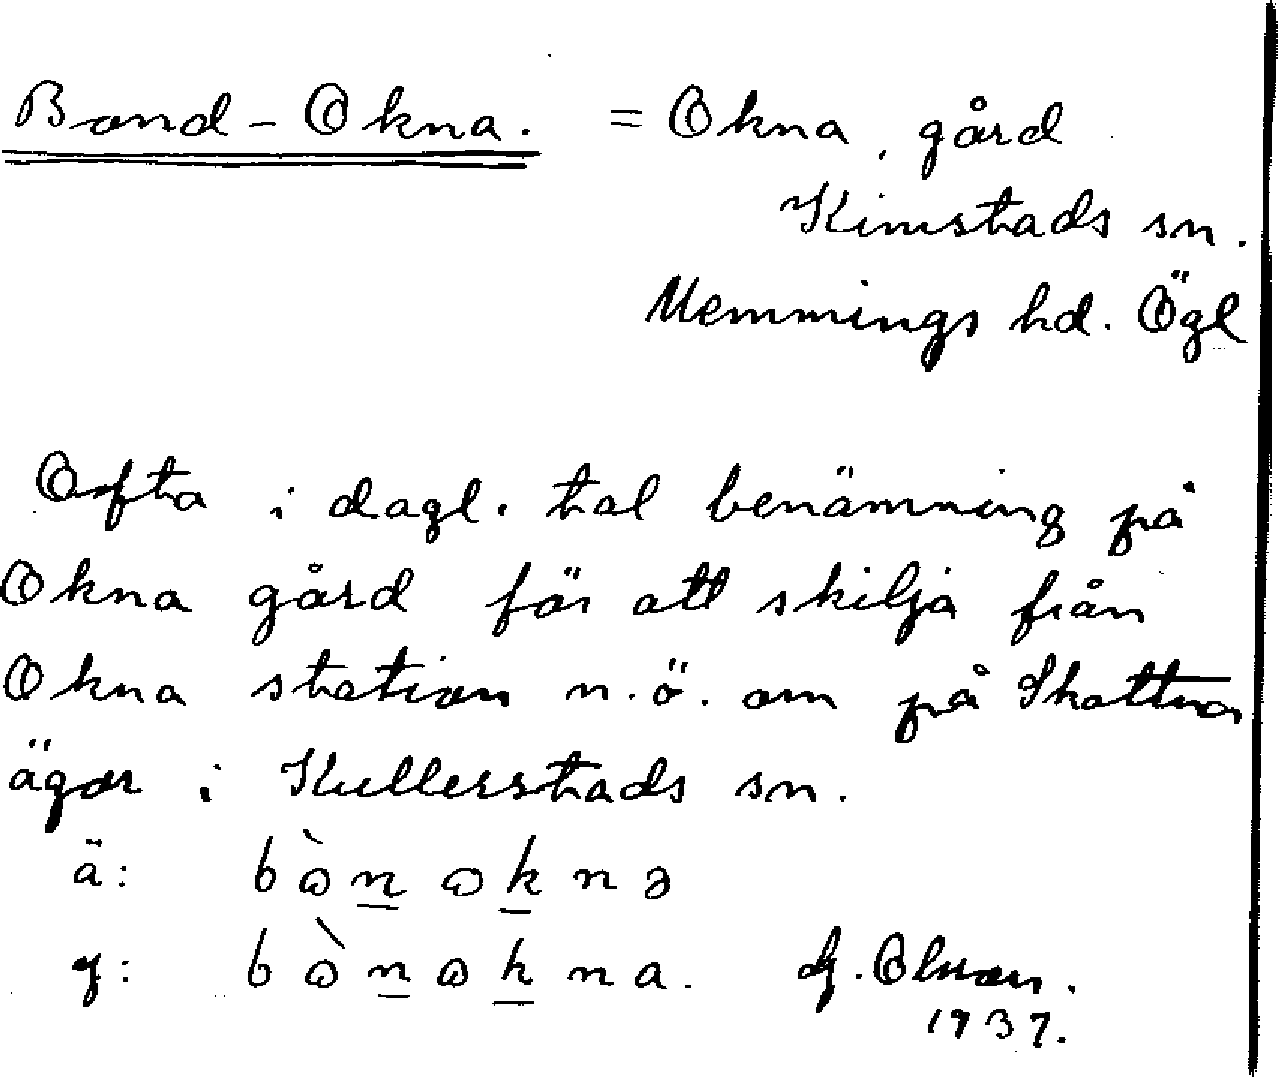 Bond - Okna. = Okna, gård
Kimstads sn.
Memmings hd. Ögl
Ofta i dagl. tal benämning på
Okna gård för att skilja från
Okna station n.ö. om på Skattna
ägor i Kullerstads sn.
ä: bɷ̀n̲ ɷk̲nə
y: bɷ̀n̲ɷk̲na.
1937.